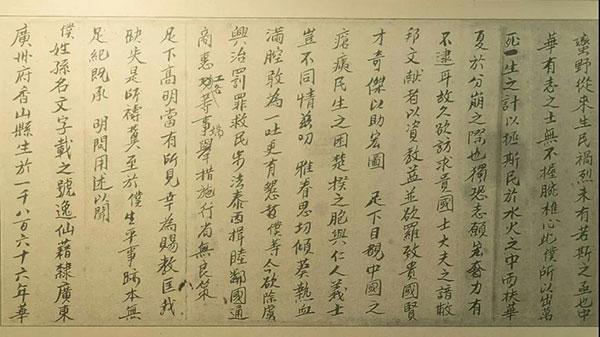 蠻野從來生民禍烈未有若斯之亟也中
華有志之士無不握腕椎心此僕所以出萬
死一生之計以拯斯民於水火之中而扶華
夏於分崩之際也獨恐志願宏奢力有
不逮耳故久欲訪求貴國士大夫之諳敝
邦文獻者以資教益並欲羅致貴國賢
才奇傑以助宏圖 足下目睹中國之
瘡痍民生之困楚揆之胞與仁人義士
豈不同情茲叨 雅眷思切傾葵熱血
滿腔敢為一吐更有懇者僕等今欲除虜
興治罰罪救民步法泰西揖睦鄰國通
商惠工各等事端舉措施行尚無良策
足下高明當有所見幸為賜教匡我
缺失是所禱冀至於僕生平事蹟本無
足紀既承 明問用述以聞
僕姓孫名文字載之號逸仙藉隸廣東
廣州府香山縣生於一千八百六十六年華